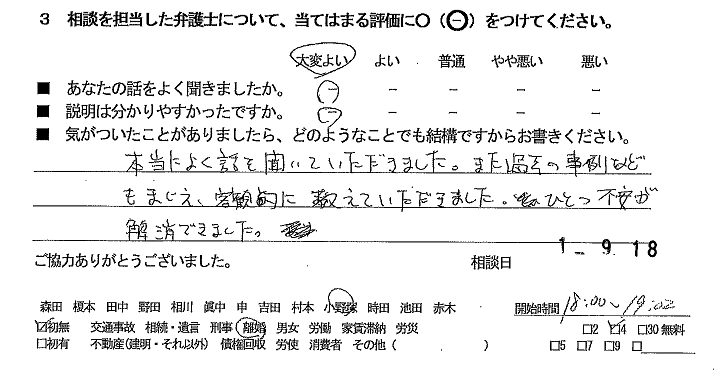 3 相談を担当した弁護士について、当てはまる評価に○（㊀）をつけてください。
大変よい よい 普通 やや悪い 悪い
■ あなたの話をよく聞きましたか。 － － － － －
■ 説明は分かりやすかったですか。 － － － － －
■ 気がついたことがありましたら、どのようなことでも結構ですからお書きください。
本当によく話を聞いていただきました。また過去の事例なども
もまじえ、客観的に教えていただきました。ひとつ不安が
解消できました。
ご協力ありがとうございました。 相談日 1-9.18
森田 榎本 田中 野田 相川 眞中 申 吉田 村本 小野塚 時田 池田 赤木 開始時間 18:00～19:00
☑初無 交通事故 相続・遺言 刑事 離婚 男女 労働 家賃滞納 労災 □2 ☑4 □30無料
□初有 不動産(建明・それ以外) 債権回収 労使 消費者 その他（ ） □5 □7 □9 □